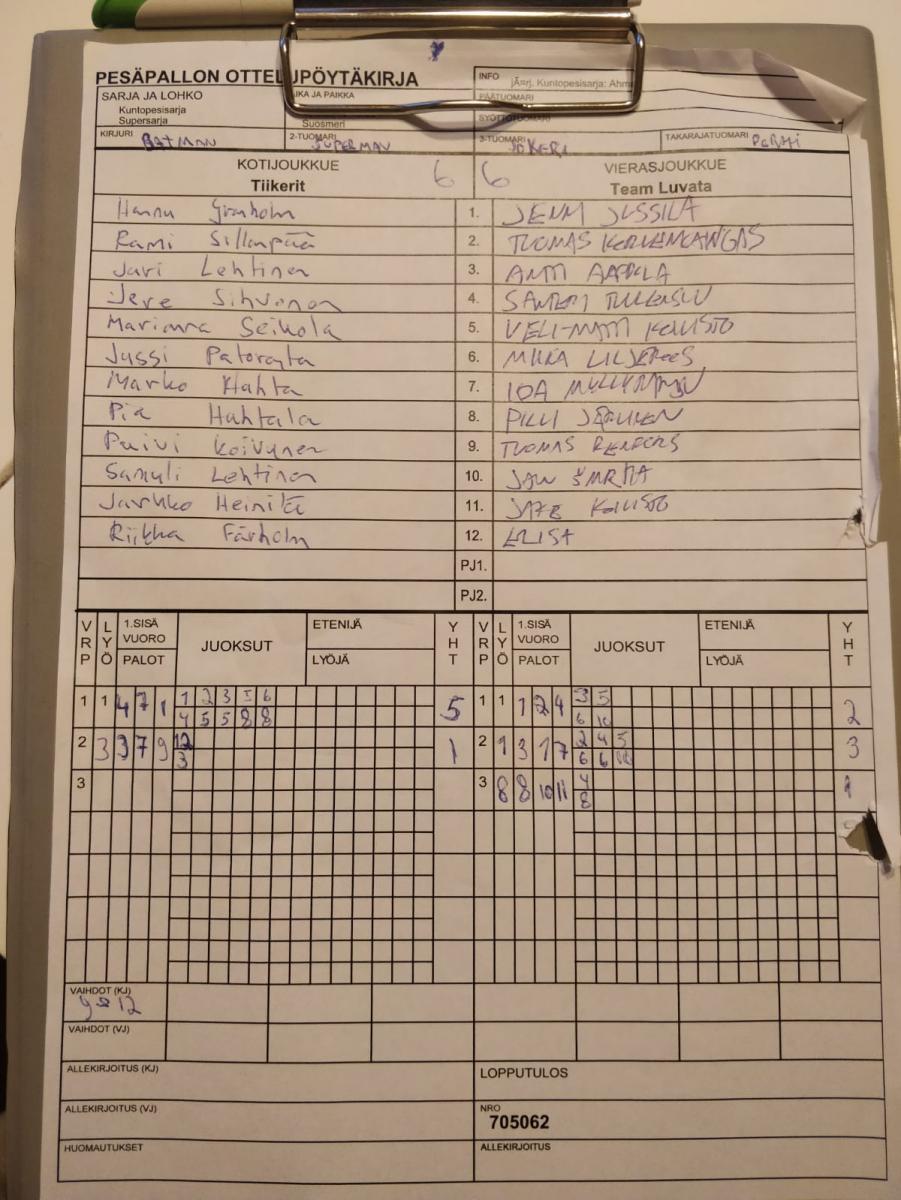 PESÄPALLON OTTELUPÖYTÄKIRJA
INFO
jÃ¤rj. Kuntopesisarja: Ahm
SARJA JA LOHKO
Kuntopesisarja
Supersarja
AIKA JA PAIKKA
Suosmeri
PÄÄTUOMARI
SYÖTTÖTUOMARI
KIRJURI BATMAN 2-TUOMARI SUPERMAN 3-TUOMARI JOKERI TAKARAJATUOMARI
KOTIJOUKKUE 6 6 VIERASJOUKKUE
Tiikerit Team Luvata
Hannu Granholm 1. JENNI JUSSILA
Rami Sillanpää 2. TUOMAS KORVENKANGAS
Jari Lehtinen 3. ANTTI
Jere Sihvonen 4.
Marianna Seikola 5. VELI-MATTI KOIVISTO
Jussi 6. MIIKA
Marko Hahta 7. IDA MYLLYMÄKI
Pia Huhtala 8.
Päivi Koivunen 9. TUOMAS
Samuli Lehtinen 10.
Jarkko Heinilä 11. KOIVISTO
Riikka Färholm 12. ELISA
PJ1.
PJ2.
VRP LYÖ 1.SISÄ VUORO PALOT JUOKSUT ETENIJÄ LYÖJÄ YHT VRP LYÖ 1.SISÄ VUORO PALOT JUOKSUT ETENIJÄ LYÖJÄ YHT
1 1 4 7 1 1 2 3 5 6 5 1 1 1 2 4 3 5 2
4 5 5 8 8 6 10
2 3 3 7 9 12 1 2 1 3 1 7 2 4 5 3
3 6 6 10
3 3 8 8 10 11 4 1
8
VAIHDOT (KJ)
9 12
VAIHDOT (VJ)
ALLEKIRJOITUS (KJ) LOPPUTULOS
ALLEKIRJOITUS (VJ) NRO
705062
HUOMAUTUKSET ALLEKIRJOITUS